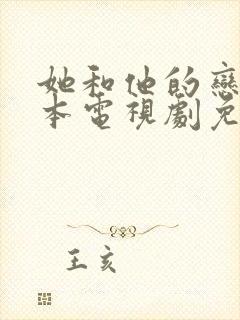 她和他的戀
本電視劇免
王亥